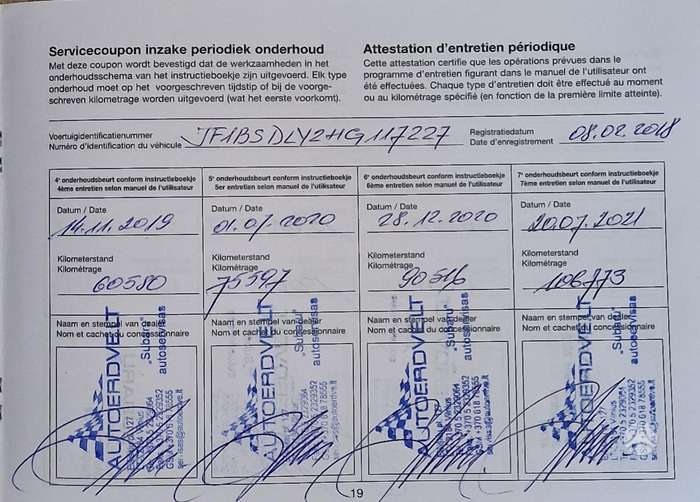 Servicecoupon inzake periodiek onderhoud
Met deze coupon wordt bevestigd dat de werkzaamheden in het
onderhoudsschema van het instructieboekje zijn uitgevoerd. Elk type
onderhoud moet op het voorgeschreven tijdstip of bij de voorge-
schreven kilometrage worden uitgevoerd (wat het eerste voorkomt).
Attestation d'entretien périodique
Cette attestation certifie que les opérations prévues dans le
programme d'entretien figurant dans le manuel de l'utilisateur ont
été effectuées. Chaque type d'entretien doit être effectué au moment
ou au kilométrage spécifié (en fonction de la première limite atteinte).
Voertuigidentificatienummer
Numéro d'identification du véhicule
JF1BSDLY2HG117227
Registratiedatum
Date d'enregistrement
08.02.2018
4e onderhoudsbeurt conform instructieboekje
4ème entretien selon manuel de l'utilisateur
Datum / Date
14.11.2019
Kilometerstand
Kilométrage
60580
Naam en stempel van dealer
Nom et cachet du concessionnaire
AUTOERDVELT
„Subaru"
autoservisas
5e onderhoudsbeurt conform instructieboekje
5er entretien selon manuel de l'utilisateur
Datum / Date
01.07.2020
Kilometerstand
Kilométrage
75597
Naam en stempel van dealer
Nom et cachet du concessionnaire
AUTOERDVELT
„Subaru"
autoservisas
6e onderhoudsbeurt conform instructieboekje
6ème entretien selon manuel de l'utilisateur
Datum / Date
28.12.2020
Kilometerstand
Kilométrage
90516
Naam en stempel van dealer
Nom et cachet du concessionnaire
AUTOERDVELT
„Subaru"
autoservisas
7e onderhoudsbeurt conform instructieboekje
7ème entretien selon manuel de l'utilisateur
Datum / Date
20.07.2021
Kilometerstand
Kilométrage
106773
Naam en stempel van dealer
Nom et cachet du concessionnaire
AUTOERDVELT
„Subaru"
autoservisas
19